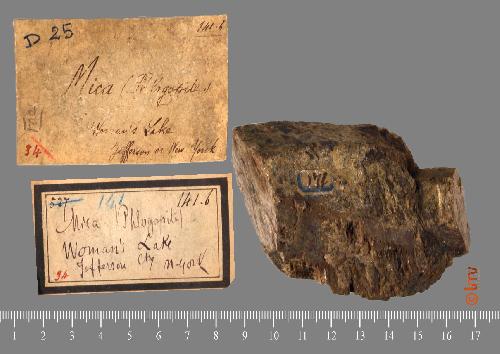 D 25
141.6
Mica (Phlogopite)
Woman's Lake
Jefferson co New York
34
337 141 141.6
Mica (Phlogopite)
Woman's Lake
Jefferson Cty N-York
34
1 2 3 4 5 6 7 8 9 10 11 12 13 14 15 16 17